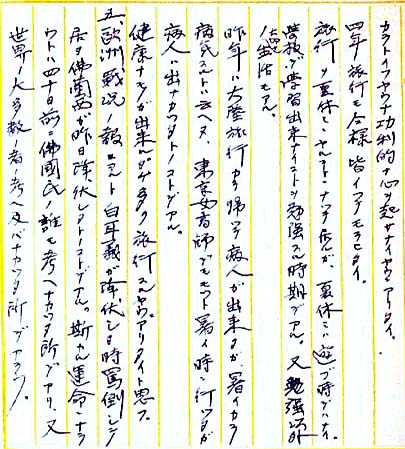 カラトイフヤウナ功利的ナ心ヲ起サナイヤウアリタイ。
四年ノ旅行モ合様皆イツテモラヒタイ。
旅行ヲ夏休ミニヤルコトニナツタ
学校デ学習出来ナイコトヲ勉強スル時期デアル。又勉強以外
ノ生活モアル。
昨年ハ大陸旅行カラ帰ツテ病人ガ出来タガ暑イカラ
病気スルトハ云ヘヌ、東京女高師デモモツト暑イ時ニ行ツタガ
病人ハ出ナカツタトノコトデアル。
健康ナモノガ出来ルダケ多ク旅行スルヤウアリタイト思フ。
五、欧洲戦況ノ報ニヨルト白耳義ガ降伏シタ時罵倒シテ
居タ佛蘭西ガ昨日降伏シタトノコトデアル。斯カル運命ニナラ
ウトハ四十日前ニ佛國民ノ誰モ考ヘナカツタ所デアリ、又
世界ノ大多数ノ者ノ考ヘ及バナカツタ所デアラウ。